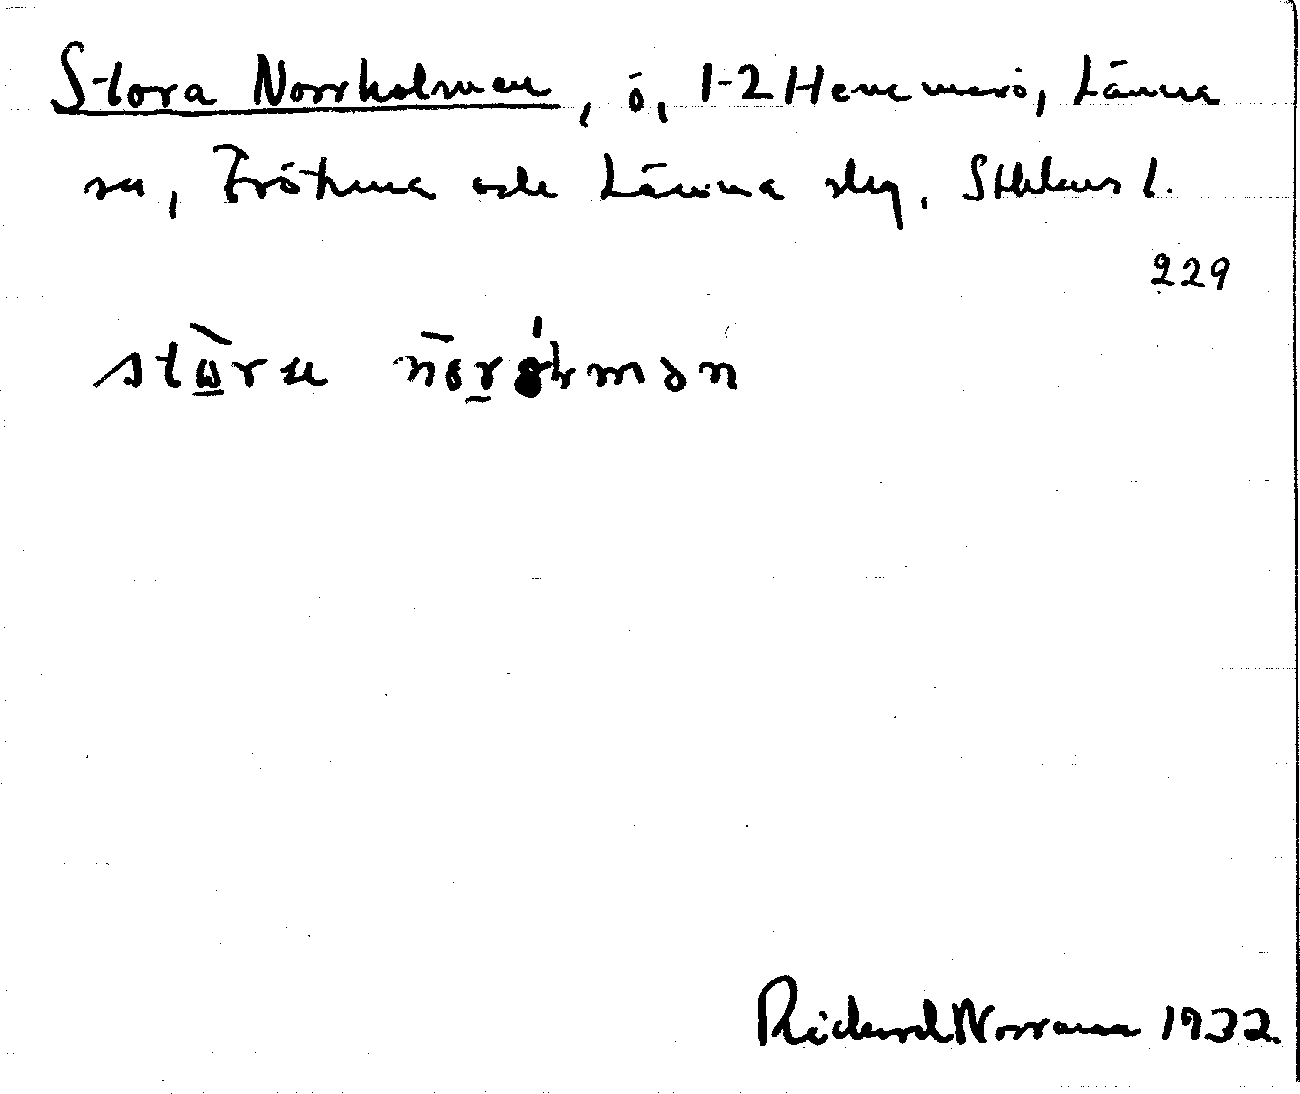 Stora Norrholmen, ö, 1-2 Hemmerö, Länna
sn, Fröfuna och Länna slg. Sthlms l.
229
stωra nɵrɵłmən
Rickard Norrman 1932.